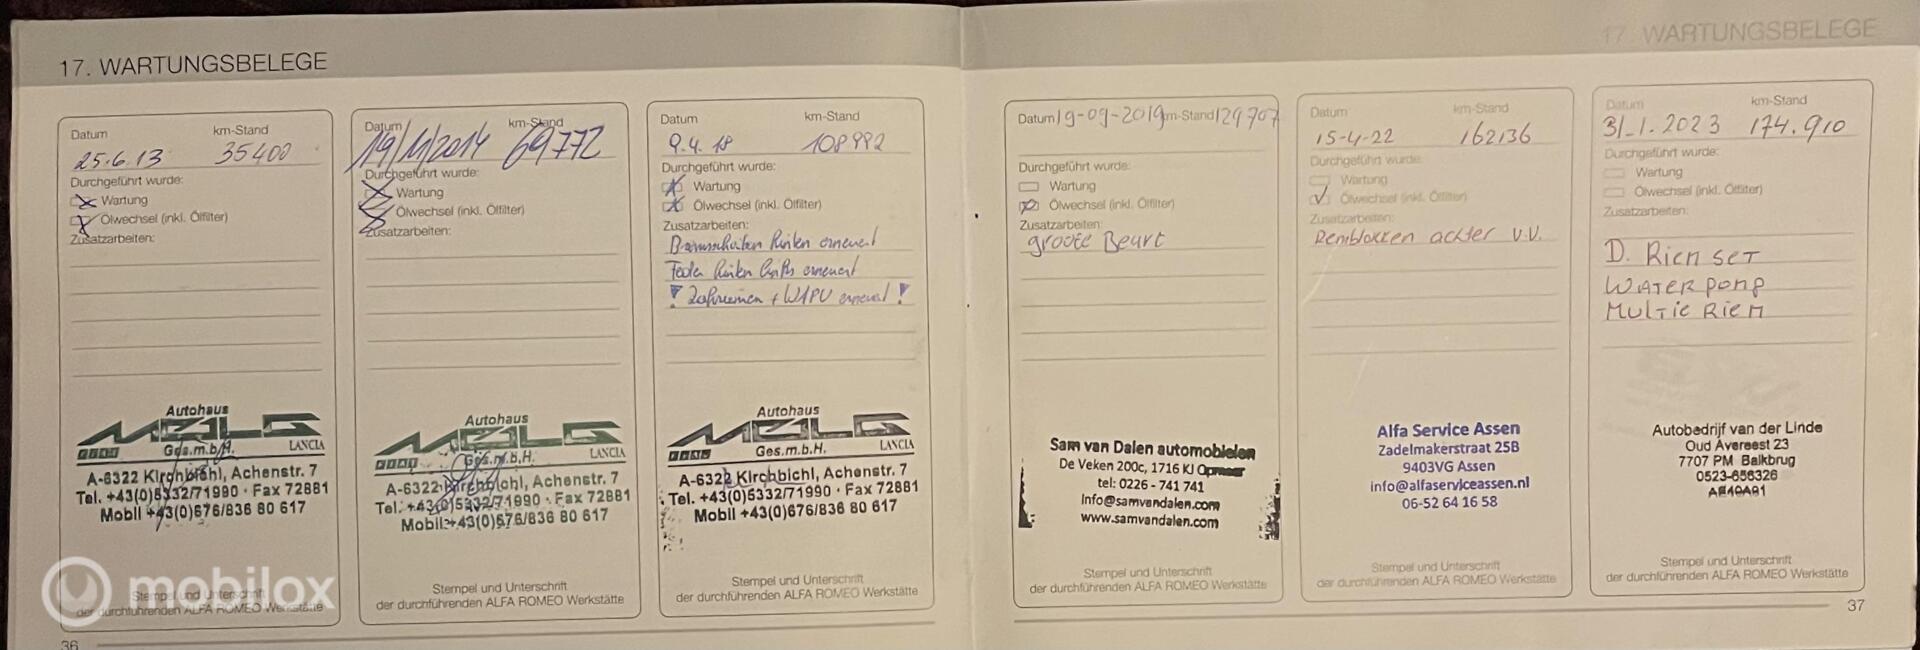 17. WARTUNGSBELEGE
17. WARTUNGSBELEGE
Datum km-Stand
25.6.13 35400
Durchgeführt wurde:
Wartung
Ölwechsel (inkl. Ölfilter)
Zusatzarbeiten:
Autohaus
MÖLG
FIAT Ges.m.b.H. LANCIA
A-6322 Kirchbichl, Achenstr. 7
Tel. +43(0)5332/71990 · Fax 72881
Mobil +43(0)676/836 80 617
Stempel und Unterschrift
der durchführenden ALFA ROMEO Werkstätte
36
Datum km-Stand
19/11/2014 69772
Durchgeführt wurde:
Wartung
Ölwechsel (inkl. Ölfilter)
Zusatzarbeiten:
Autohaus
MÖLG
FIAT Ges.m.b.H. LANCIA
A-6322 Kirchbichl, Achenstr. 7
Tel. +43(0)5332/71990 · Fax 72881
Mobil +43(0)676/836 80 617
Stempel und Unterschrift
der durchführenden ALFA ROMEO Werkstätte
Datum km-Stand
9.4.18 108992
Durchgeführt wurde:
Wartung
Ölwechsel (inkl. Ölfilter)
Zusatzarbeiten:
Bremsscheiben hinten erneuert
Feder hinten links erneuert
! Zahnriemen + WAPU erneuert !
Autohaus
MÖLG
FIAT Ges.m.b.H. LANCIA
A-6322 Kirchbichl, Achenstr. 7
Tel. +43(0)5332/71990 · Fax 72881
Mobil +43(0)676/836 80 617
Stempel und Unterschrift
der durchführenden ALFA ROMEO Werkstätte
Datum 19-09-2019 km-Stand 129707
Durchgeführt wurde:
Wartung
Ölwechsel (inkl. Ölfilter)
Zusatzarbeiten:
groote Beurt
Sam van Dalen automobielen
De Veken 200c, 1716 KJ Opmeer
tel: 0226 - 741 741
Info@samvandalen.com
www.samvandalen.com
Stempel und Unterschrift
der durchführenden ALFA ROMEO Werkstätte
Datum km-Stand
15-4-22 162136
Durchgeführt wurde:
Wartung
Ölwechsel (inkl. Ölfilter)
Zusatzarbeiten:
Remblokken achter V.V.
Alfa Service Assen
Zadelmakerstraat 25B
9403VG Assen
info@alfaserviceassen.nl
06-52 64 16 58
Stempel und Unterschrift
der durchführenden ALFA ROMEO Werkstätte
Datum km-Stand
31.1.2023 174.910
Durchgeführt wurde:
Wartung
Ölwechsel (inkl. Ölfilter)
Zusatzarbeiten:
D. Riem set
Waterpomp
Multie Riem
Autobedrijf van der Linde
Oud Avereest 23
7707 PM Balkbrug
0523-656326
Stempel und Unterschrift
der durchführenden ALFA ROMEO Werkstätte
37
mobilox